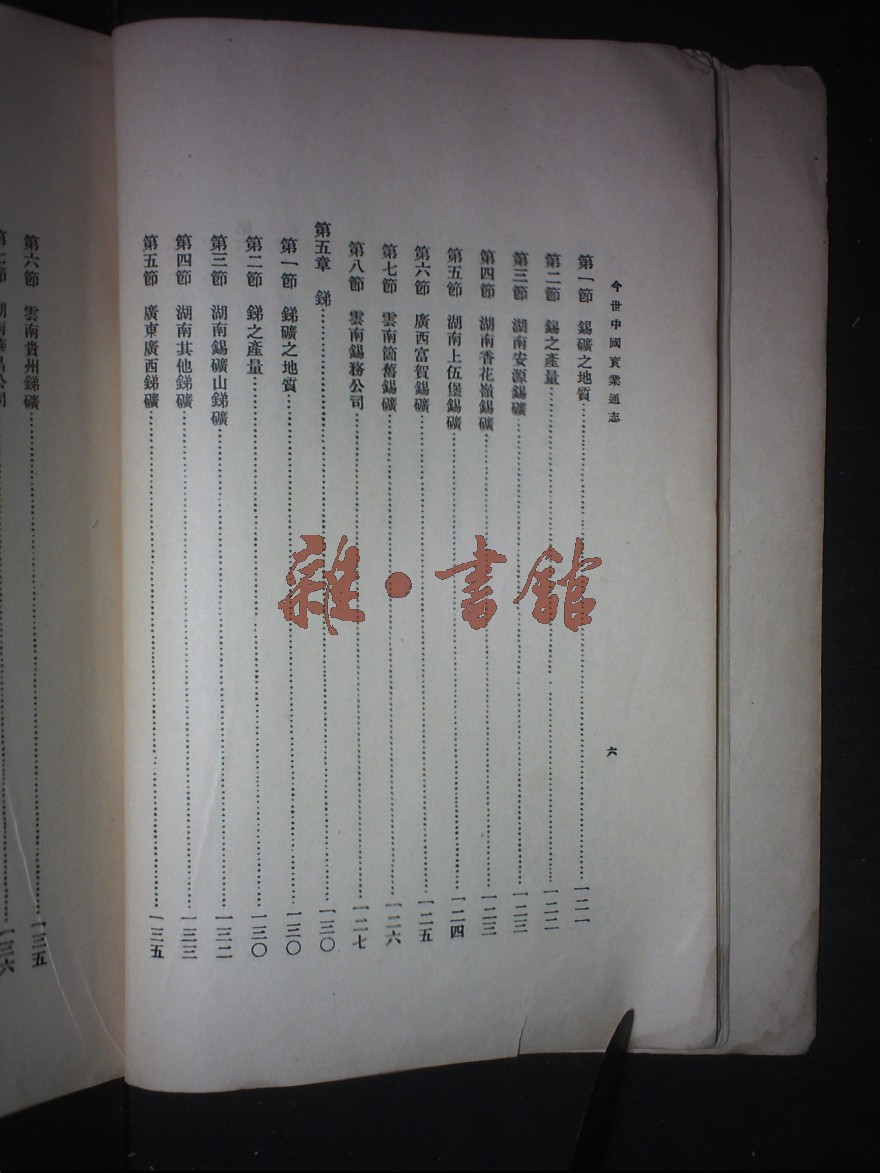 今世中國實業通志
六
第一節 錫礦之地質……一二一
第二節 錫之產量……一二二
第三節 湖南安源錫礦……一二三
第四節 湖南香花嶺錫礦……一二三
第五節 湖南上伍堡錫礦……一二四
第六節 廣西富賀錫礦……一二五
第七節 雲南箇舊錫礦……一二六
第八節 雲南錫務公司……一二七
第五章 銻……一三〇
第一節 銻礦之地質……一三〇
第二節 銻之產量……一三〇
第三節 湖南錫礦山銻礦……一三二
第四節 湖南其他銻礦……一三三
第五節 廣東廣西銻礦……一三五
第六節 雲南貴州銻礦……一三五
第七節 湖南華昌公司……一三六
雜·書館